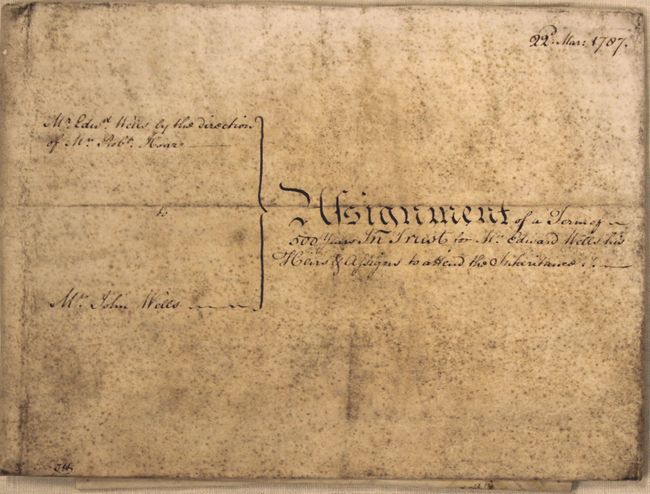 22d. Mar: 1787.
Mr. Edwd. Wells by the direction
of Mr. Robt. Hoar
to
Assignment of a Term of
500 Years In Trust for Mr. Edward Wells his
Heirs & Assigns to attend the Inheritance &c.
Mr. John Wells